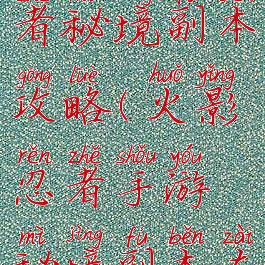 者秘境副本
gōng lüè huǒ yǐng
攻略(火影
rěn zhě shǒu yóu
忍者手游
mì jìng fù běn zài
秘境副本在